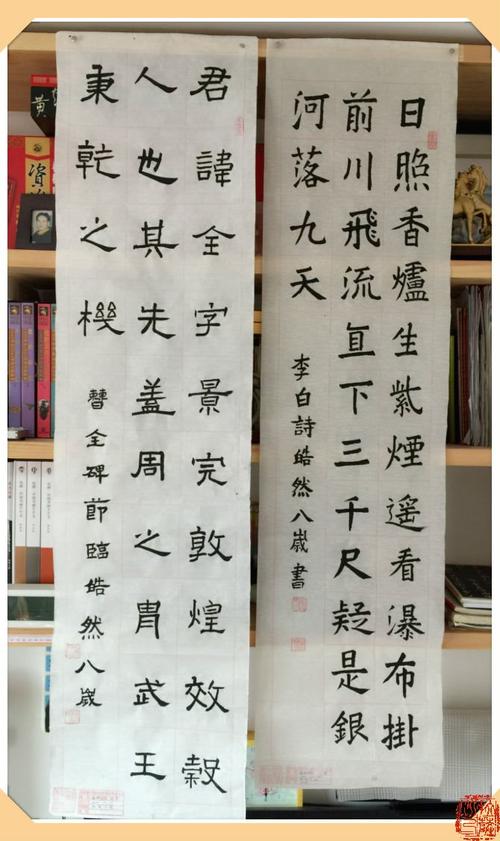 日照香爐生紫煙遥看瀑布掛
前川飛流直下三千尺疑是銀
河落九天
李白詩皓然八歲書
君諱全字景完敦煌效穀
人也其先蓋周之胄武王
秉乾之機
曹全碑節臨皓然八歲
黄
资治